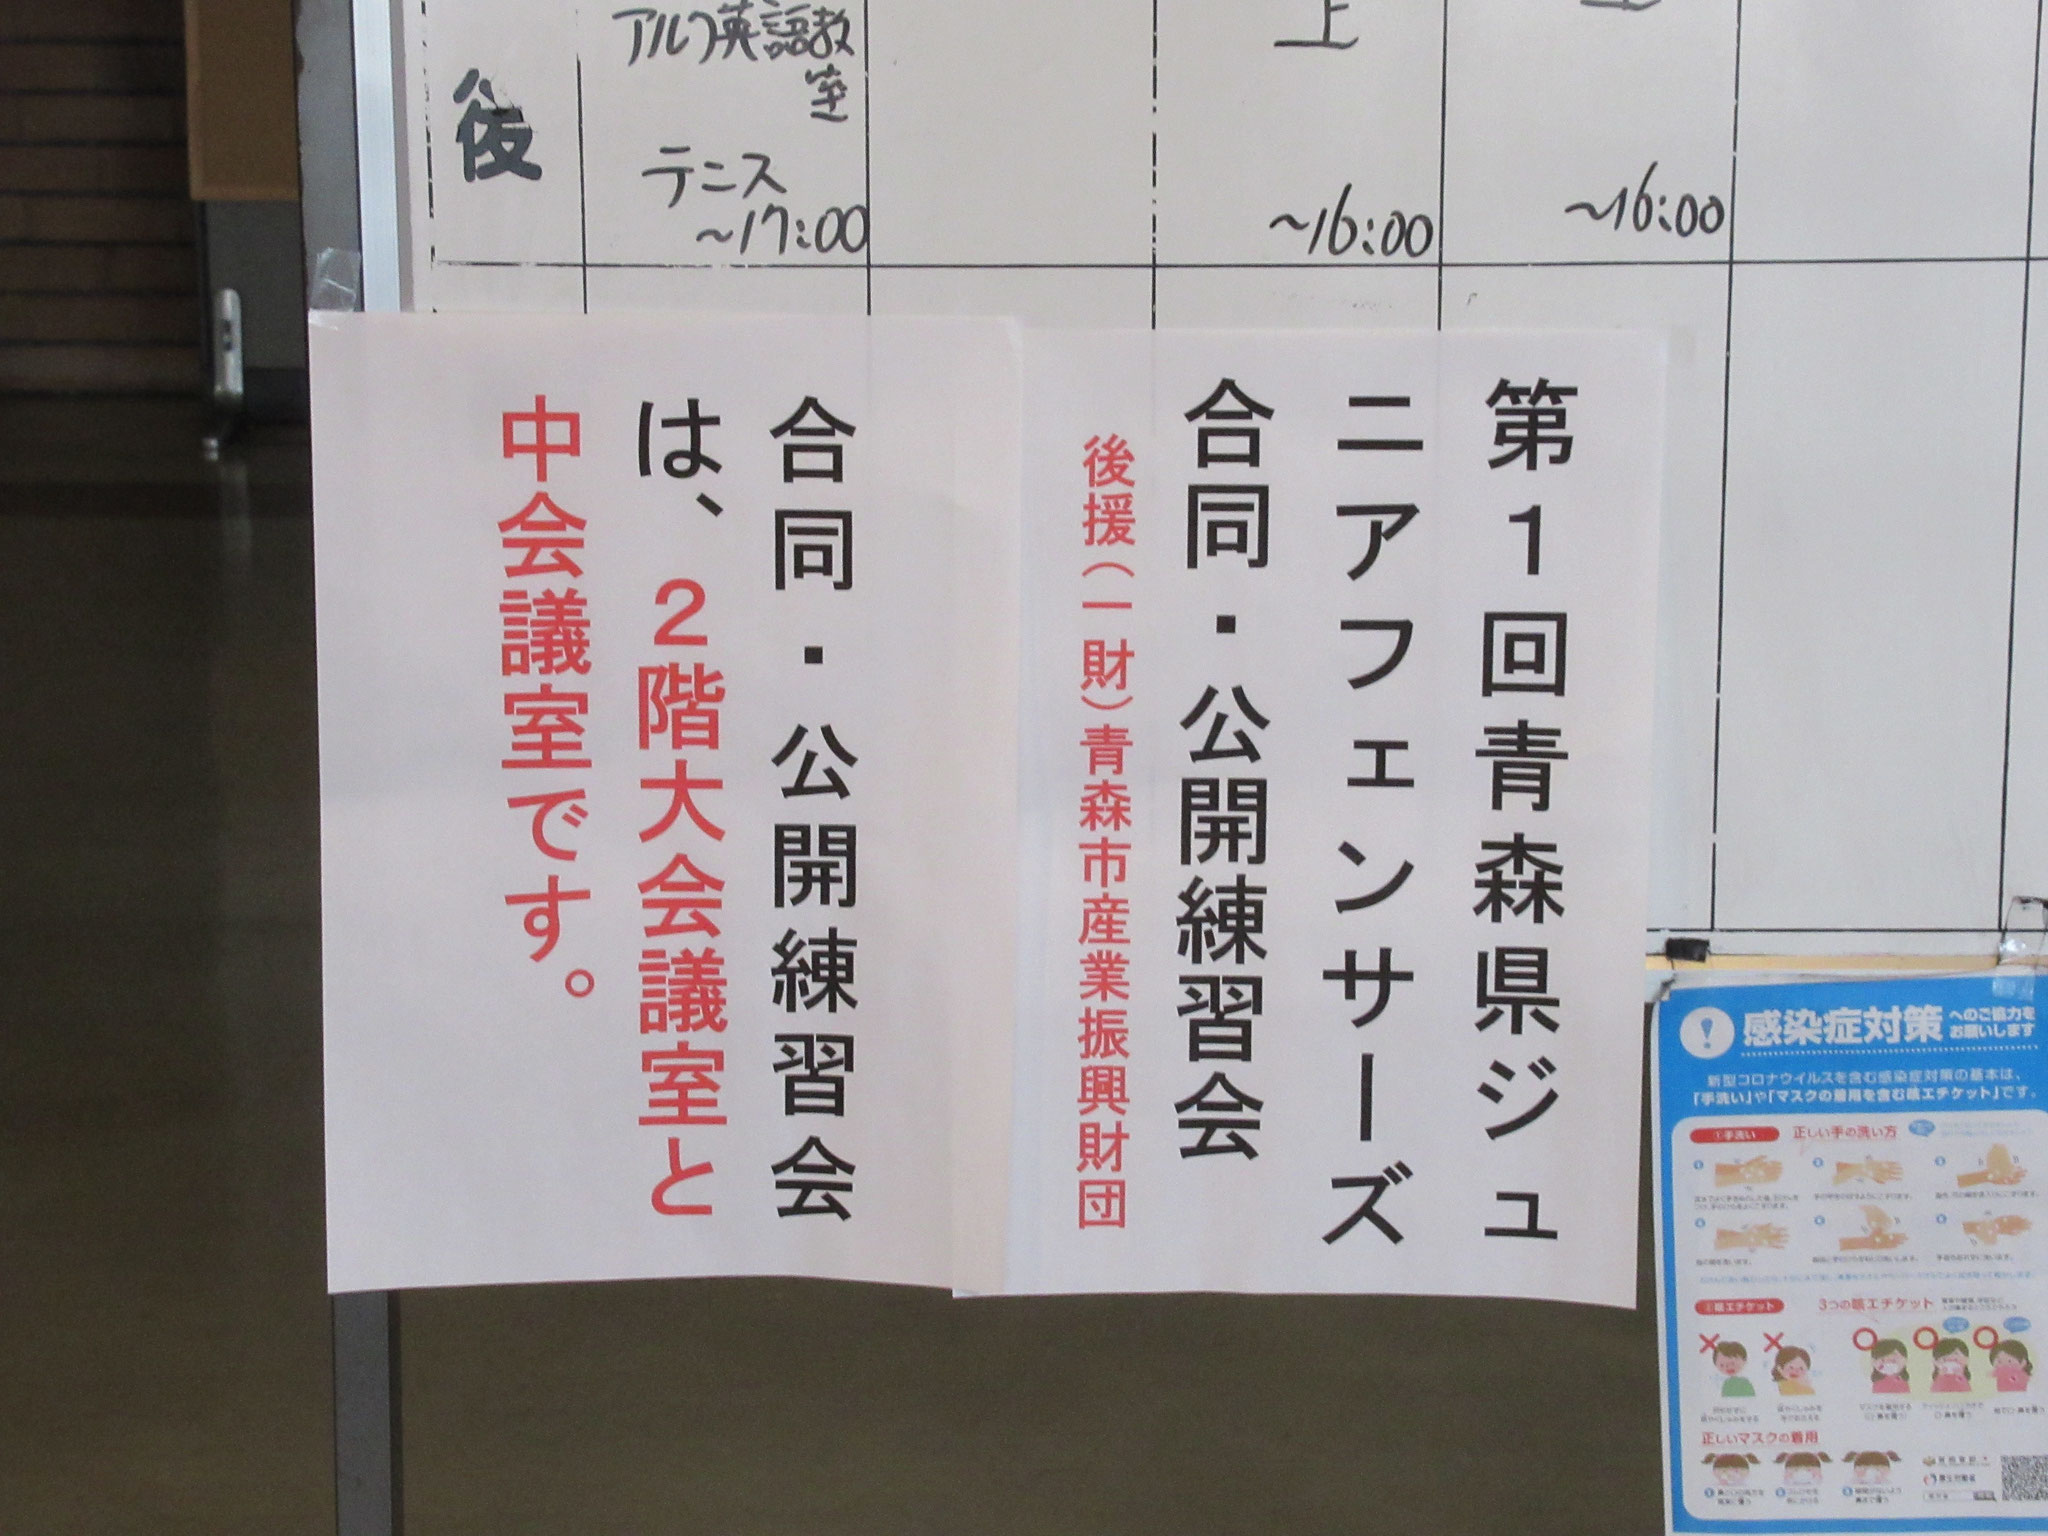 アルフ英語教
室
上
後
テニス
～17:00
～16:00
～16:00
第1回青森県ジュ
ニアフェンサーズ
合同・公開練習会
後援（一財）青森市産業振興財団
合同・公開練習会
は、2階大会議室と
中会議室です。
感染症対策 へのご協力を
お願いします
新型コロナウイルスを含む感染症対策の基本は、
「手洗い」や「マスクの着用を含む咳エチケット」です。
①手洗い 正しい手の洗い方
②咳エチケット 3つの咳エチケット
正しいマスクの着用